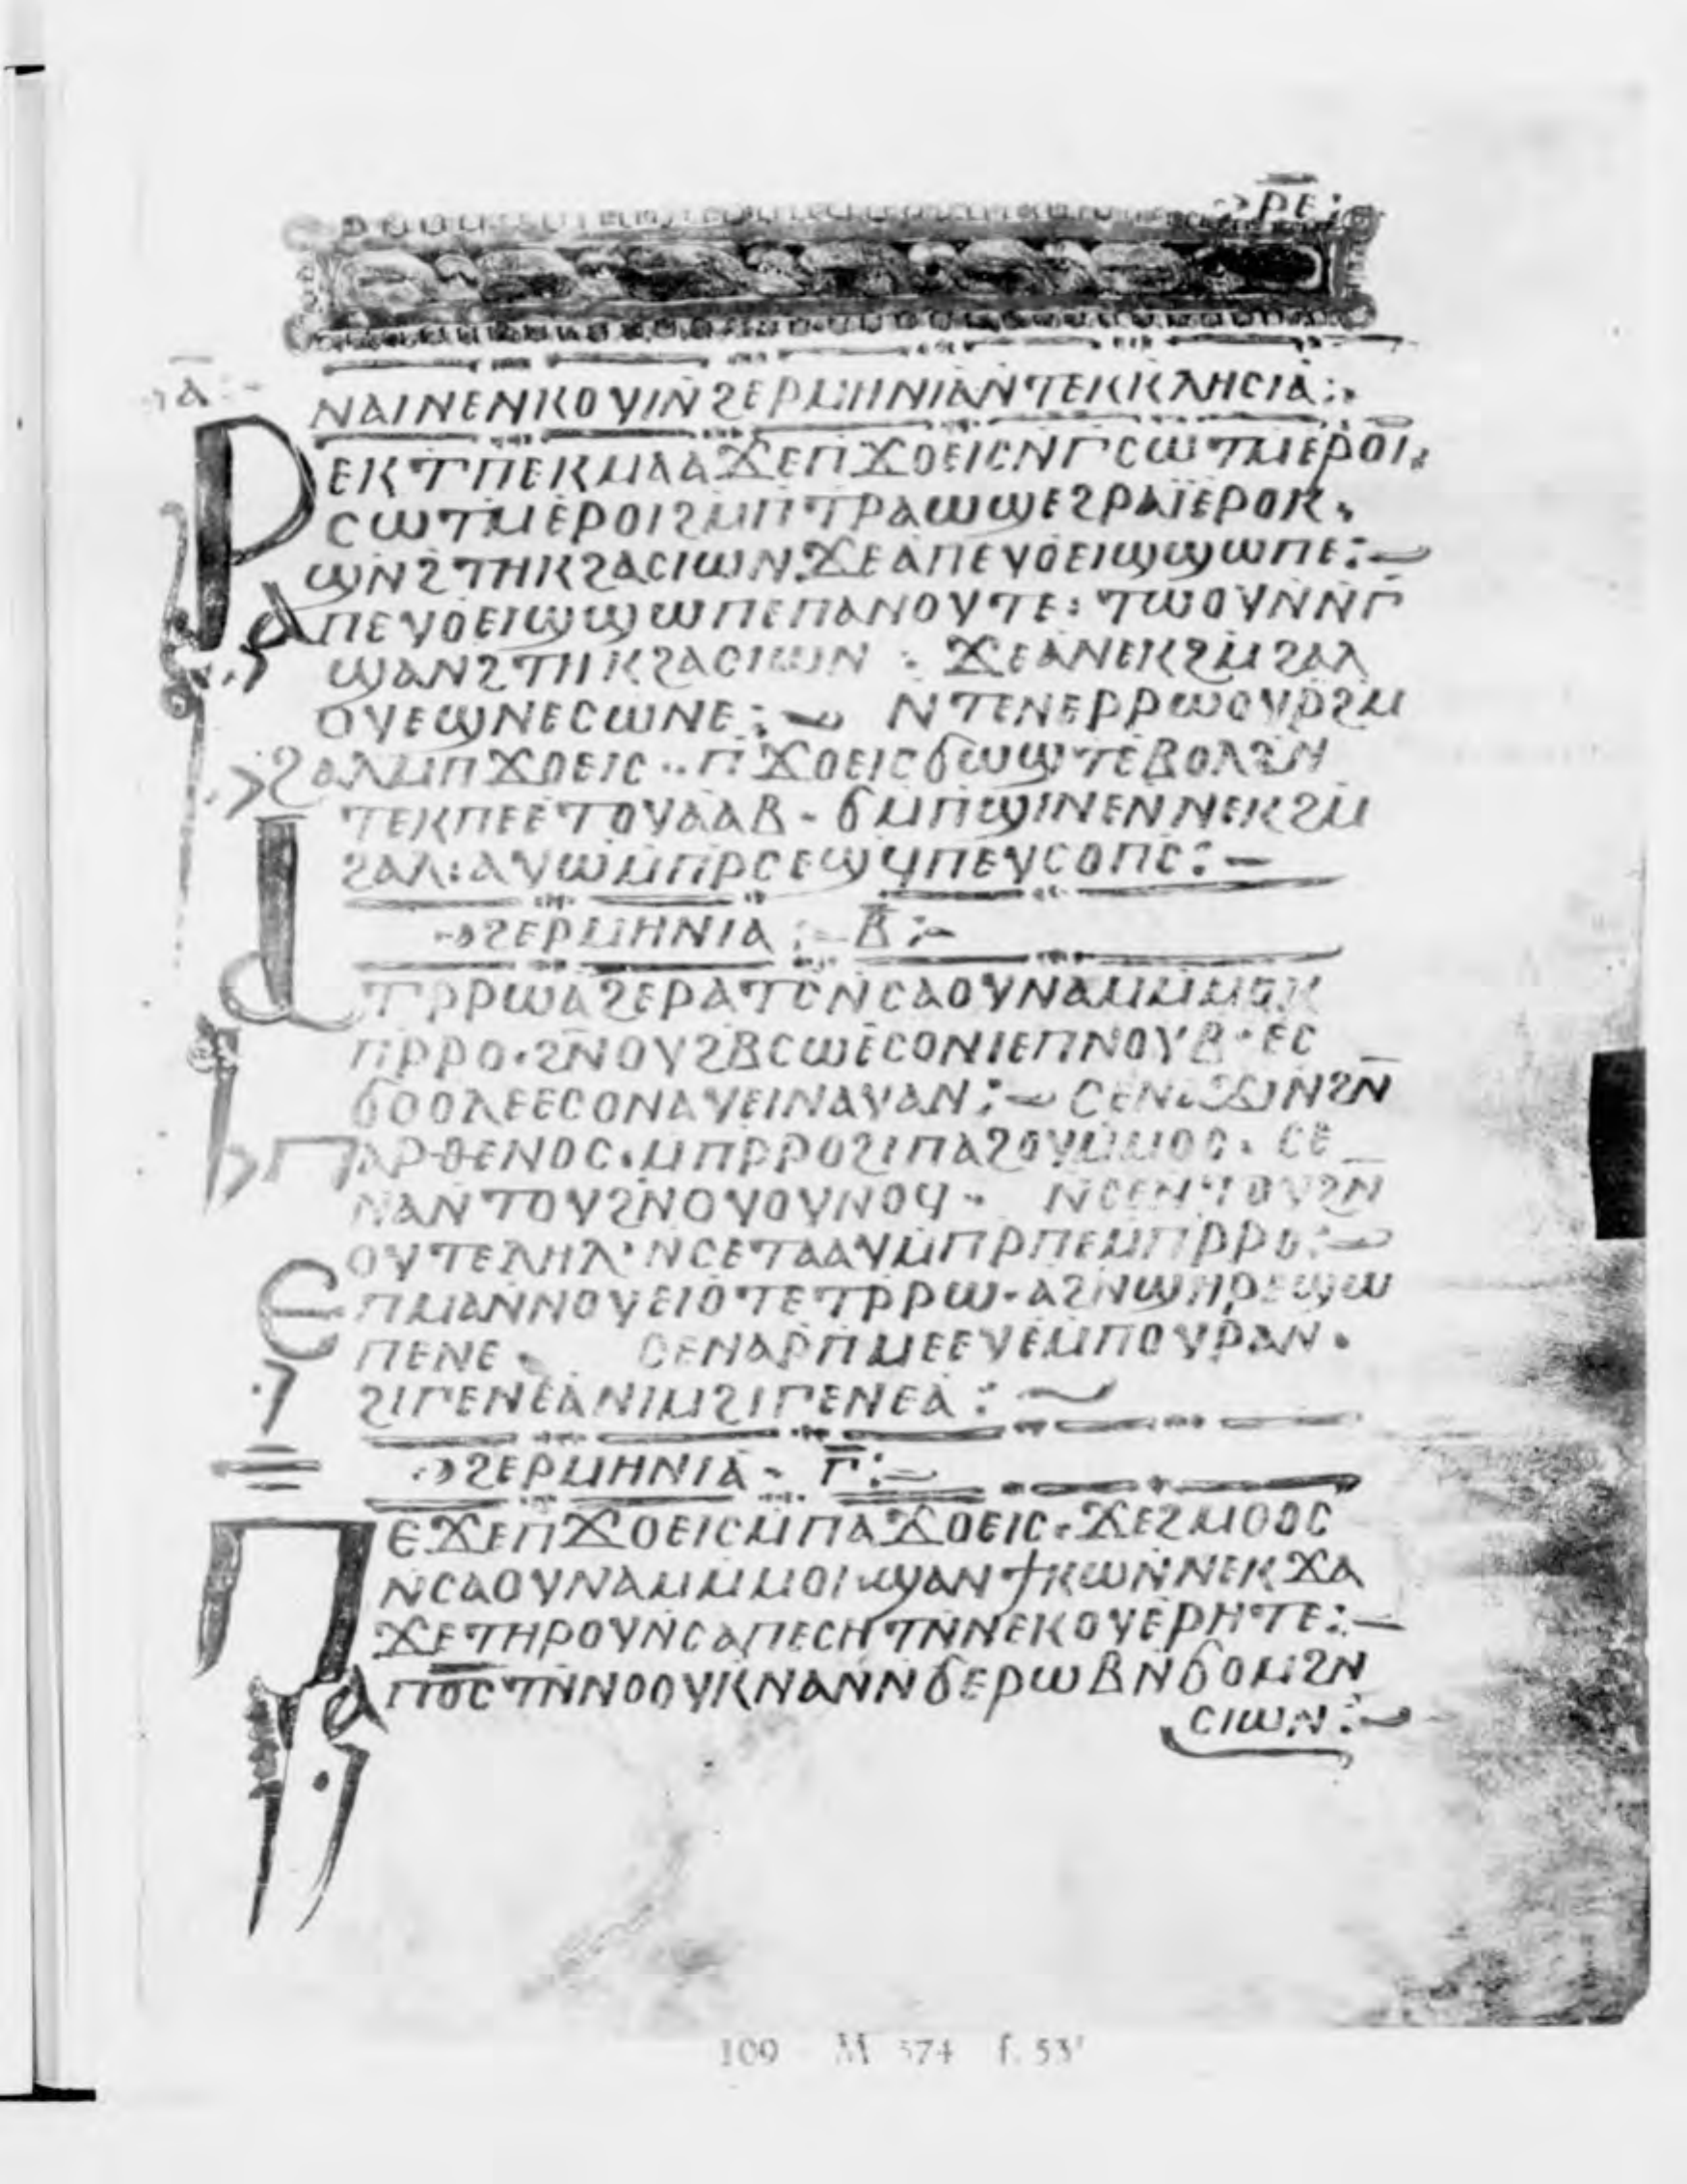 ⲣ̄ⲉ̄:
ⲁ̄:-
ⲛⲁⲓⲛⲉⲛⲕⲟⲩⲓⲛ̄ϩⲉⲣⲙⲏⲛⲓⲁⲛ̄ⲧⲉⲕⲕⲗⲏⲥⲓⲁ:
ⲣⲉⲕⲧⲡⲉⲕⲙⲁⲁϫⲉⲡϫⲟⲉⲓⲥⲛⲅⲥⲱⲧⲙⲉⲣⲟⲓ.
ⲥⲱⲧⲙⲉⲣⲟⲓϩⲙⲡⲧⲣⲁⲱϣⲉϩⲣⲁⲓ̈ⲉⲣⲟⲕ.
ϣⲛϩⲧⲏⲕϩⲁⲥⲓⲱⲛ.ϫⲉⲁⲡⲉⲩⲟⲉⲓϣϣⲱⲡⲉ:-
ⲁⲡⲉⲩⲟⲉⲓϣϣⲱⲡⲉⲡⲁⲛⲟⲩⲧⲉ: ⲧⲱⲟⲩⲛⲛ̄ⲅ
ϣⲁⲛϩⲧⲏⲕϩⲁⲥⲓⲱⲛ . ϫⲉⲁⲛⲉⲕϩⲙ̄ϩⲁⲗ
ⲟⲩⲉϣⲛⲉⲥⲱⲛⲉ:- ⲛⲧⲉⲛⲉⲣⲣⲱⲟⲩⲣϩⲙ
ϩⲁⲗⲙ̄ⲡϫⲟⲉⲓⲥ.. ⲡϫⲟⲉⲓⲥϭⲱϣⲧⲉⲃⲟⲗϩⲛ
ⲧⲉⲕⲡⲉⲉⲧⲟⲩⲁⲁⲃ - ϭⲙⲡϣⲓⲛⲉⲛ̄ⲛⲉⲕϩⲙ̄
ϩⲁⲗ:ⲁⲩⲱⲙ̄ⲡⲣⲥⲉϣϥⲡⲉⲩⲥⲟⲡⲥ:-
ϩⲉⲣⲙⲏⲛⲓⲁ :- ⲃ̄:-
ⲁⲧⲣⲣⲱⲁϩⲉⲣⲁⲧⲥⲛⲥⲁⲟⲩⲛⲁⲙⲙ̄ⲙⲟⲕ
ⲡⲣⲣⲟ.ϩⲛ̄ⲟⲩϩⲃⲥⲱⲉⲥⲟⲛⲓⲉⲡⲛⲟⲩⲃ·ⲉⲥ
ϭⲟⲟⲗⲉⲉⲥⲟⲛⲁⲩⲉⲓⲛⲁⲩⲁⲛ:- ⲥⲉⲛⲁϫⲓⲛϩⲛ̄
ⲡⲁⲣⲑⲉⲛⲟⲥ.ⲙⲡⲣⲣⲟϩⲓⲡⲁϩⲟⲩⲙ̄ⲙⲟⲥ. ⲥⲉ
ⲛⲁⲛⲧⲟⲩϩⲛⲟⲩⲟⲩⲛⲟϥ- ⲛⲥⲉⲛⲧⲟⲩϩⲛ
ⲟⲩⲧⲉⲗⲏⲗ·ⲛⲥⲉⲧⲁⲁⲩⲙ̄ⲡⲣⲡⲉⲙ̄ⲡⲣⲣⲟ:-
ⲉⲡⲙⲁⲛ̄ⲛⲟⲩⲉⲓⲟⲧⲉⲧⲣⲣⲱ-ⲁϩⲛ̄ϣⲏⲣⲉϣⲱ
ⲡⲉⲛⲉ. ⲥⲉⲛⲁⲣⲡⲙⲉⲉⲩⲉⲙ̄ⲡⲟⲩⲣⲁⲛ.
ϩⲓⲅⲉⲛⲉⲁⲛⲓⲙϩⲓⲅⲉⲛⲉⲁ:-
ϩⲉⲣⲙⲏⲛⲓⲁ- ⲅ̄:-
ⲡⲉϫⲉⲡϫⲟⲉⲓⲥⲙⲡⲁϫⲟⲉⲓⲥ.ϫⲉϩⲙⲟⲟⲥ
ⲛⲥⲁⲟⲩⲛⲁⲙⲙ̄ⲙⲟⲓ.ϣⲁⲛϯⲕⲱⲛ̄ⲛⲉⲕϫⲁ
ϫⲉⲧⲏⲣⲟⲩⲛⲥⲁⲡⲉⲥⲏⲧⲛ̄ⲛⲉⲕⲟⲩⲉⲣⲏⲧⲉ:-
ⲁⲡⲟ̄ⲥ̄ⲧⲛ̄ⲛⲟⲟⲩⲕⲛⲁⲛⲛϭⲉⲣⲱⲃⲛϭⲟⲙϩⲛ
ⲥⲓⲱⲛ:-
109 M 574 f. 53r